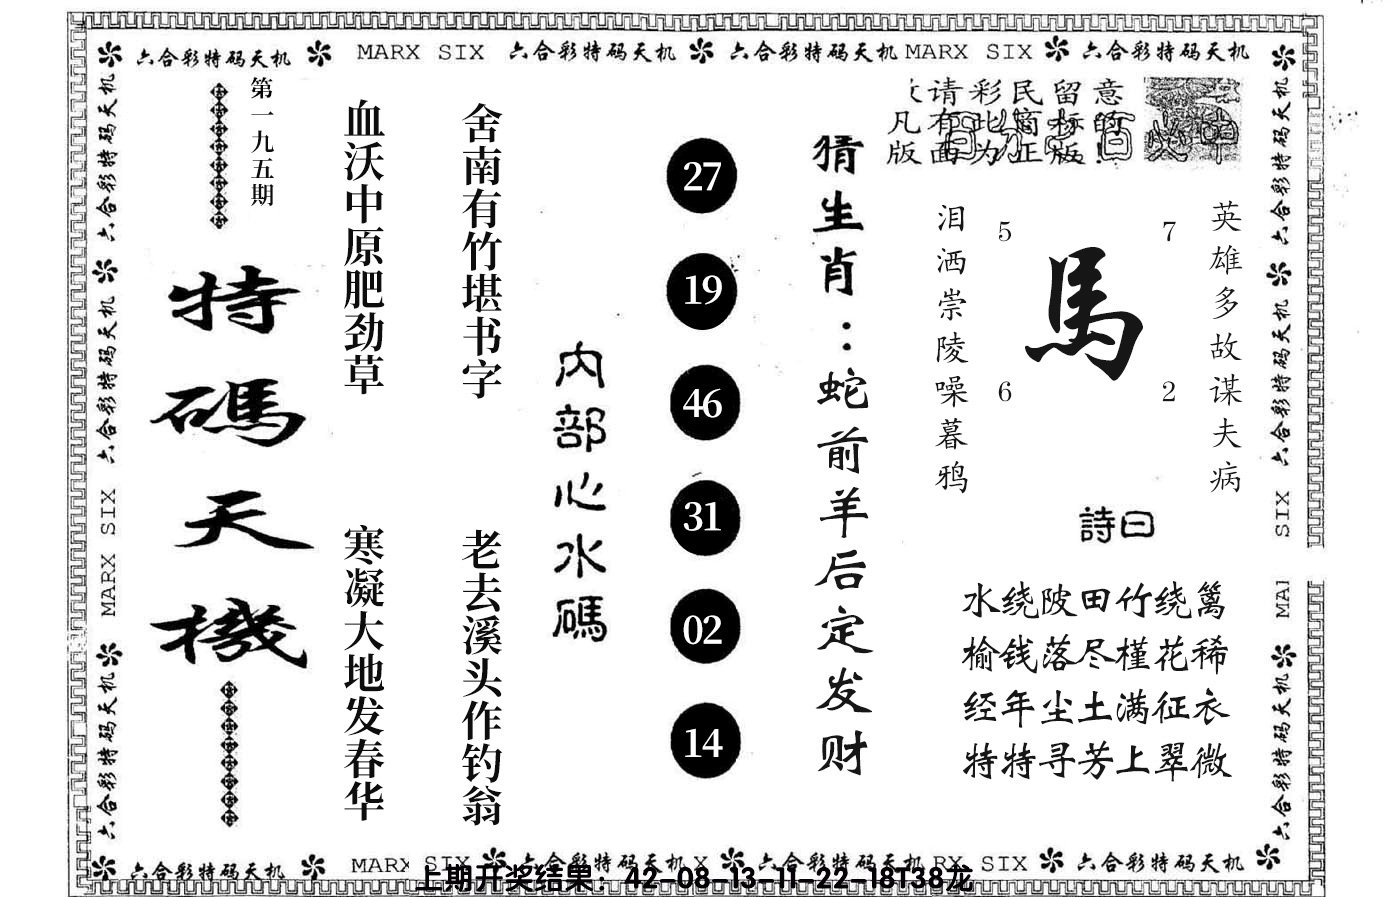 六合彩特码天机 MARX SIX 六合彩特码天机 六合彩特码天机 MARX SIX 六合彩特码天机
第一九五期
特碼天機
血沃中原肥劲草
寒凝大地发春华
舍南有竹堪书字
老去溪头作钓翁
内部心水碼
27
19
46
31
02
14
猜生肖：蛇前羊后定发财
请彩民留意
凡有此商标的
版面为正版！
英雄多故谋夫病
泪洒崇陵噪暮鸦
5
7
馬
6
2
詩曰
水绕陂田竹绕篱
榆钱落尽槿花稀
经年尘土满征衣
特特寻芳上翠微
六合彩特码天机
六合彩特码天机
MARX SIX
六合彩特码天机
六合彩特码天机
六合彩特码天机
SIX
MAI
六合彩特码天机
六合彩特码天机 MARX SIX 六合彩特码天机 X 六合彩特码天机 RX SIX 六合彩特码天机
上期开奖结果：42-08-13-11-22-18T38龙